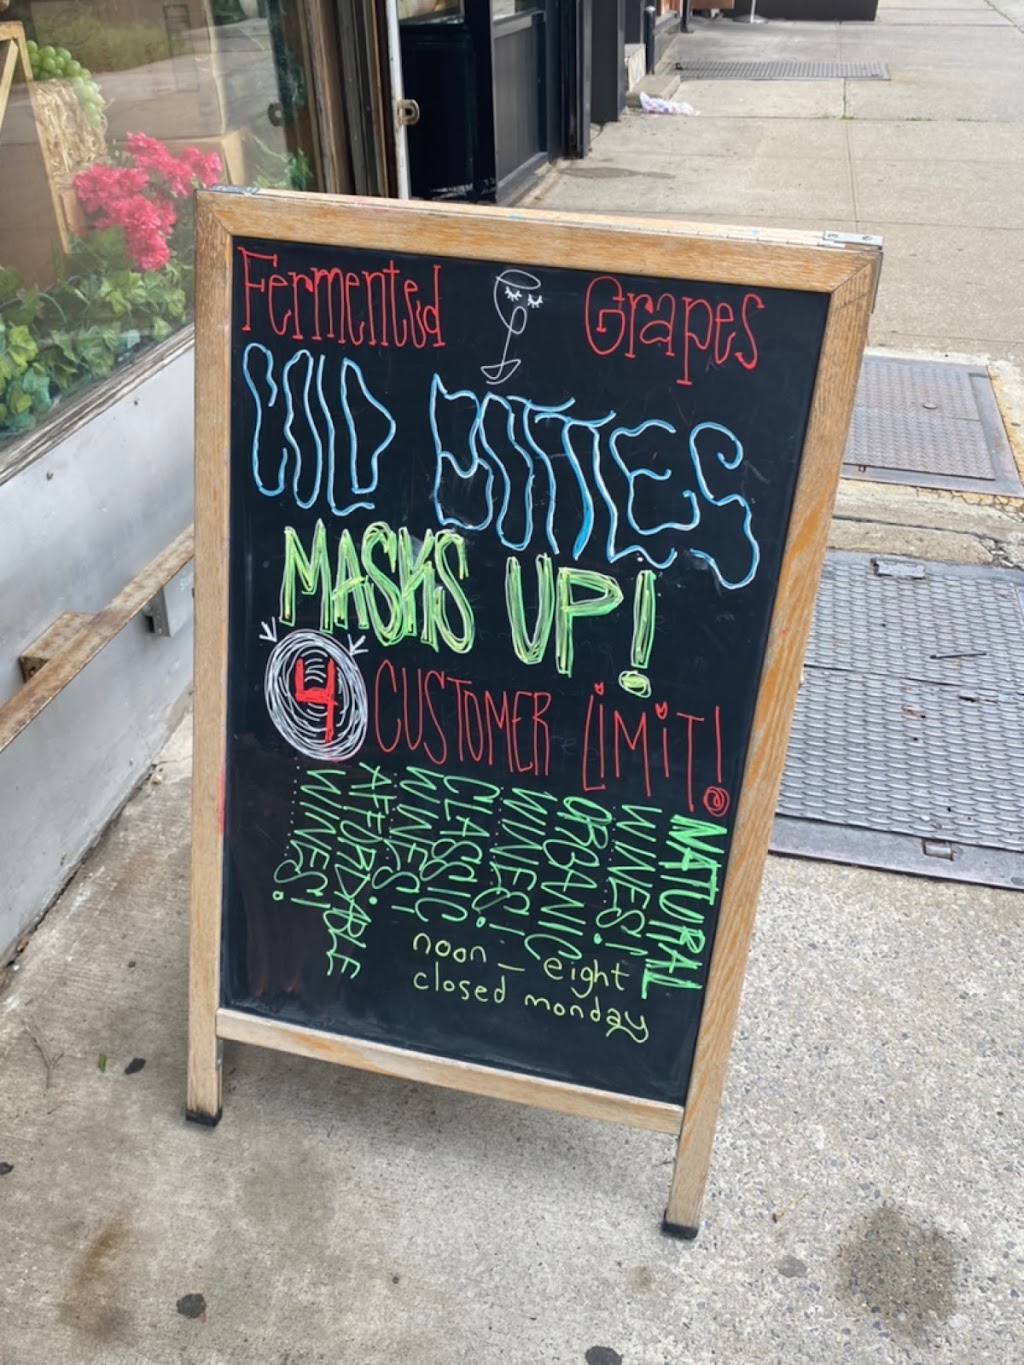 Fermented Grapes
COLD BOTTLES
MASKS UP!
4 CUSTOMER LIMIT!
NATURAL
WINES!
ORGANIC
WINES!
CLASSIC
WINES!
AFFORDABLE
WINES!
noon – eight
closed monday